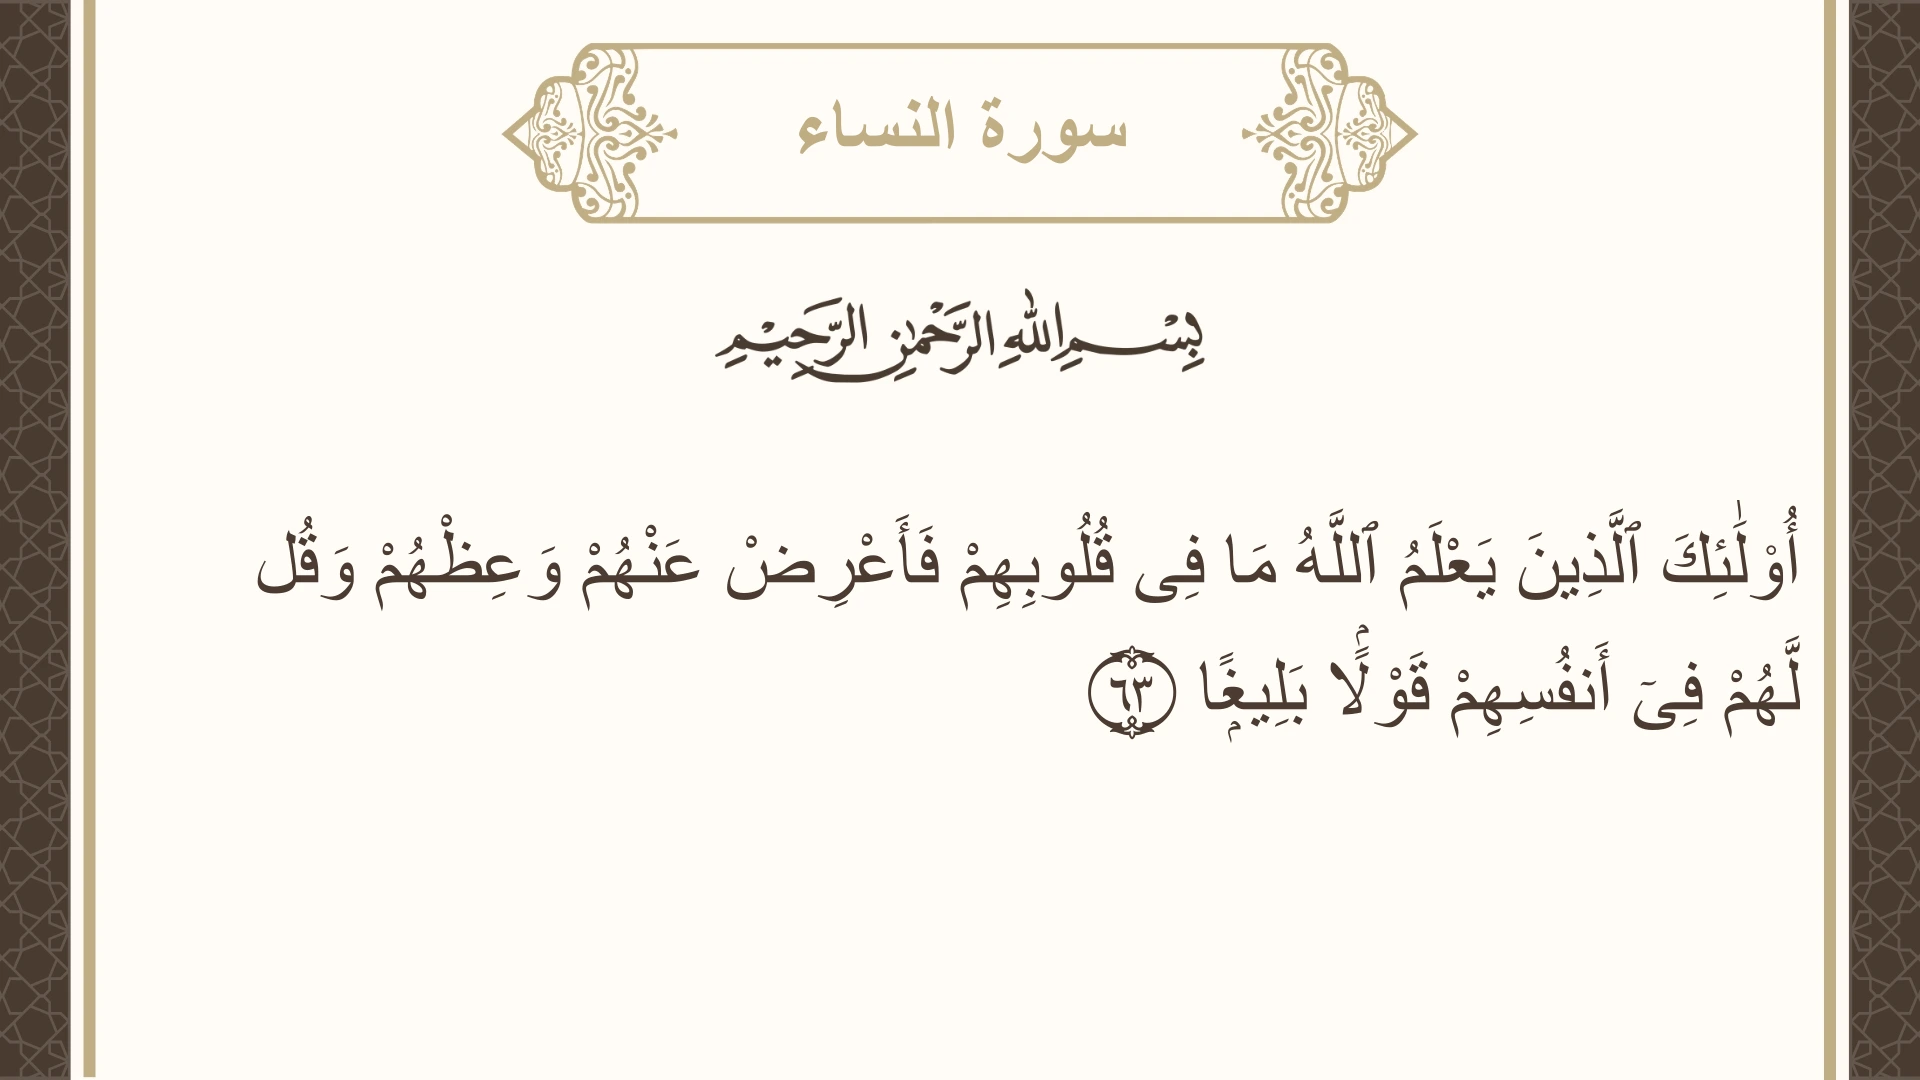 سورة النساء
بِسْمِ اللهِ الرَّحْمٰنِ الرَّحِيْمِ
أُوْلَٰٓئِكَ ٱلَّذِينَ يَعْلَمُ ٱللَّهُ مَا فِى قُلُوبِهِمْ فَأَعْرِضْ عَنْهُمْ وَعِظْهُمْ وَقُل
لَّهُمْ فِىٓ أَنفُسِهِمْ قَوْلًۢا بَلِيغًۭا ٦٣